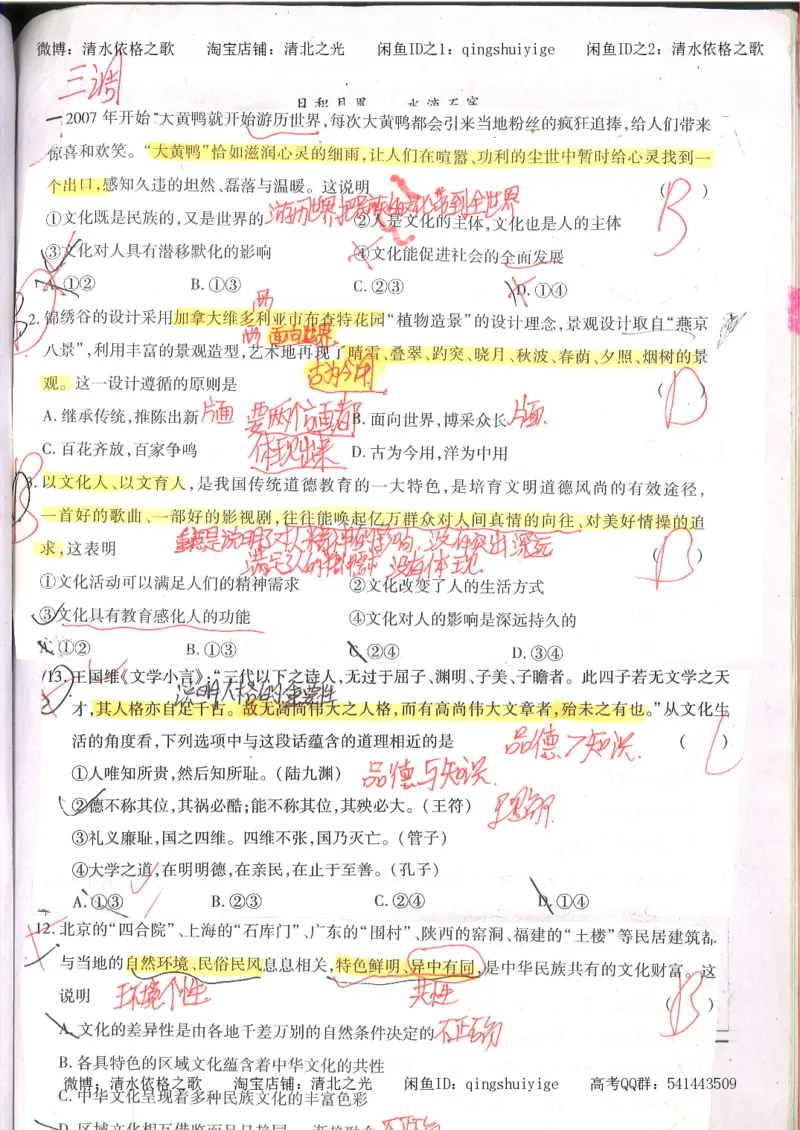 微博：清水依格之歌 淘宝店铺：清北之光 闲鱼ID之1：qingshuiyige 闲鱼ID之2：清水依格之歌
三调
2007年开始“大黄鸭就开始游历世界，每次大黄鸭都会引来当地粉丝的疯狂追捧，给人们带来
惊喜和欢笑。“大黄鸭”恰如滋润心灵的细雨，让人们在喧嚣、功利的尘世中暂时给心灵找到一
个出口，感知久违的坦然、磊落与温暖。这说明 （B）
游历世界把民族的文化带到全世界
①文化既是民族的，又是世界的 ②人是文化的主体，文化也是人的主体
③文化对人具有潜移默化的影响 ④文化能促进社会的全面发展
A.①② B.①③ C.②③ D.①④
西
2.锦绣谷的设计采用加拿大维多利亚市布查特花园“植物造景”的设计理念，景观设计取自“燕京
西 面向世界
八景”，利用丰富的景观造型，艺术地再现了晴雪、叠翠、趵突、晓月、秋波、春荫、夕照、烟树的景
古为今用
观。这一设计遵循的原则是 （D）
A.继承传统，推陈出新 片面 要两个方面都 B.面向世界，博采众长 片面
C.百花齐放，百家争鸣 体现出来 D.古为今用，洋为中用
3.以文化人、以文育人，是我国传统道德教育的一大特色，是培育文明道德风尚的有效途径，
一首好的歌曲、一部好的影视剧，往往能唤起亿万群众对人间真情的向往、对美好情操的追
求，这表明 （B）
①文化活动可以满足人们的精神需求 ②文化改变了人的生活方式
③文化具有教育感化人的功能 ④文化对人的影响是深远持久的
A.①② B.①③ C.②④ D.③④
13.王国维《文学小言》：“三代以下之诗人，无过于屈子、渊明、子美、子瞻者。此四子若无文学之天
说明人格的重要性
才，其人格亦自足千古。故无高尚伟大之人格，而有高尚伟大文章者，殆未之有也。”从文化生
活的角度看，下列选项中与这段话蕴含的道理相近的是 （ ）
品德>知识.
①人唯知所贵，然后知所耻。（陆九渊） 品德与知识.
②德不称其位，其祸必酷；能不称其位，其殃必大。（王符）
③礼义廉耻，国之四维。四维不张，国乃灭亡。（管子）
④大学之道，在明明德，在亲民，在止于至善。（孔子）
A.①③ B.②③ C.②④ D.①④
12.北京的“四合院”、上海的“石库门”、广东的“围村”、陕西的窑洞、福建的“土楼”等民居建筑都
与当地的自然环境、民俗民风息息相关，特色鲜明、异中有同，是中华民族共有的文化财富。这
说明 环境个性 共性 （B）
A.文化的差异性是由各地千差万别的自然条件决定的 不正确
B.各具特色的区域文化蕴含着中华文化的共性
微博：清水依格之歌 淘宝店铺：清北之光 闲鱼ID：qingshuiyige 高考QQ群：541443509
C.中华文化呈现着多种民族文化的丰富色彩